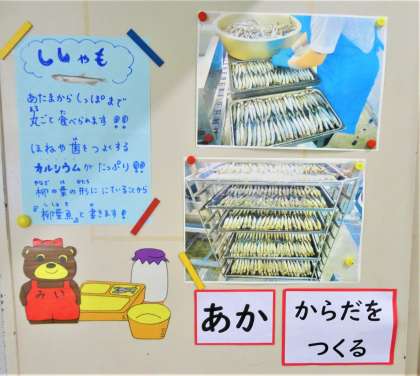 ししゃも
あたまからしっぽまで
丸ごと食べられます!!
ほねや歯をつよくする
カルシウムがたっぷり!!
柳の葉の形ににていることから
『柳葉魚』と書きます!
みい
あか
からだを
つくる